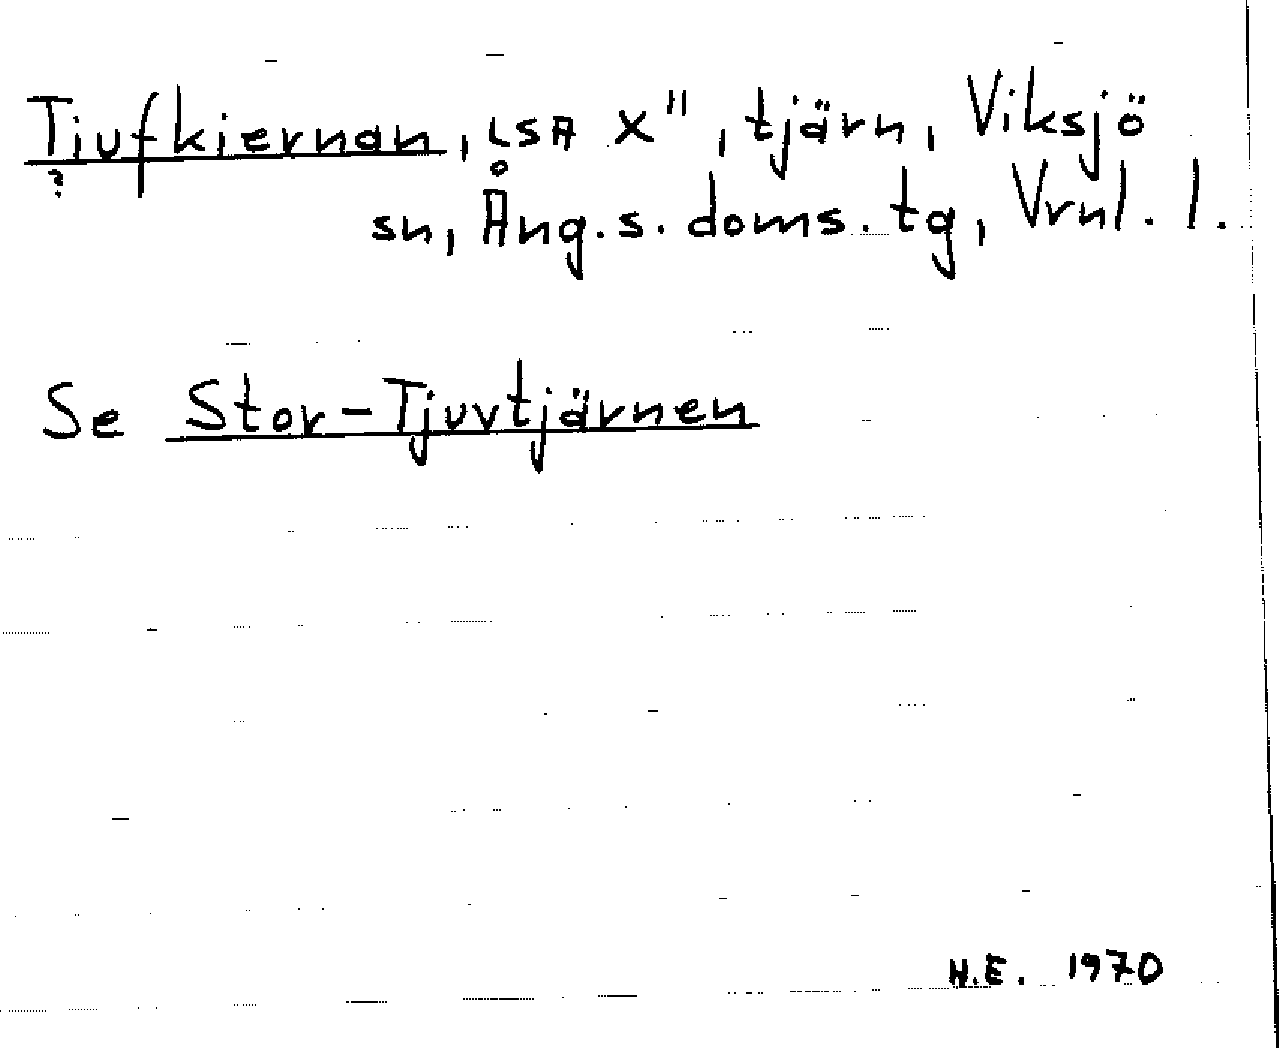 Tiufkiernan, LSA X", tjärn, Viksjö
?
sn, Ång.s. doms. tg, Vrnl. l.
Se Stor-Tjuvtjärnen
H.E. 1970